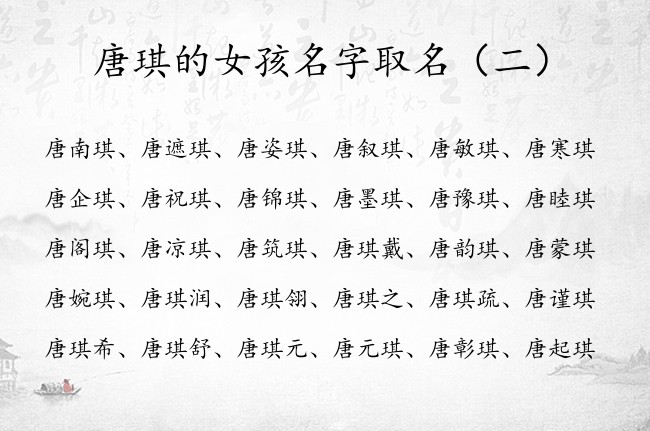 唐琪的女孩名字取名（二）
唐南琪、唐遮琪、唐姿琪、唐叙琪、唐敏琪、唐寒琪
唐企琪、唐祝琪、唐锦琪、唐墨琪、唐豫琪、唐睦琪
唐阁琪、唐凉琪、唐筑琪、唐琪戴、唐韵琪、唐蒙琪
唐婉琪、唐琪润、唐琪翎、唐琪之、唐琪疏、唐谨琪
唐琪希、唐琪舒、唐琪元、唐元琪、唐彰琪、唐起琪